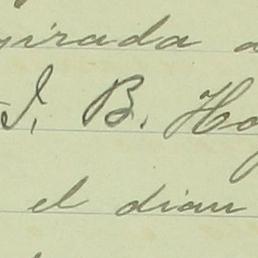 girada a
J. B. Ho
el dian